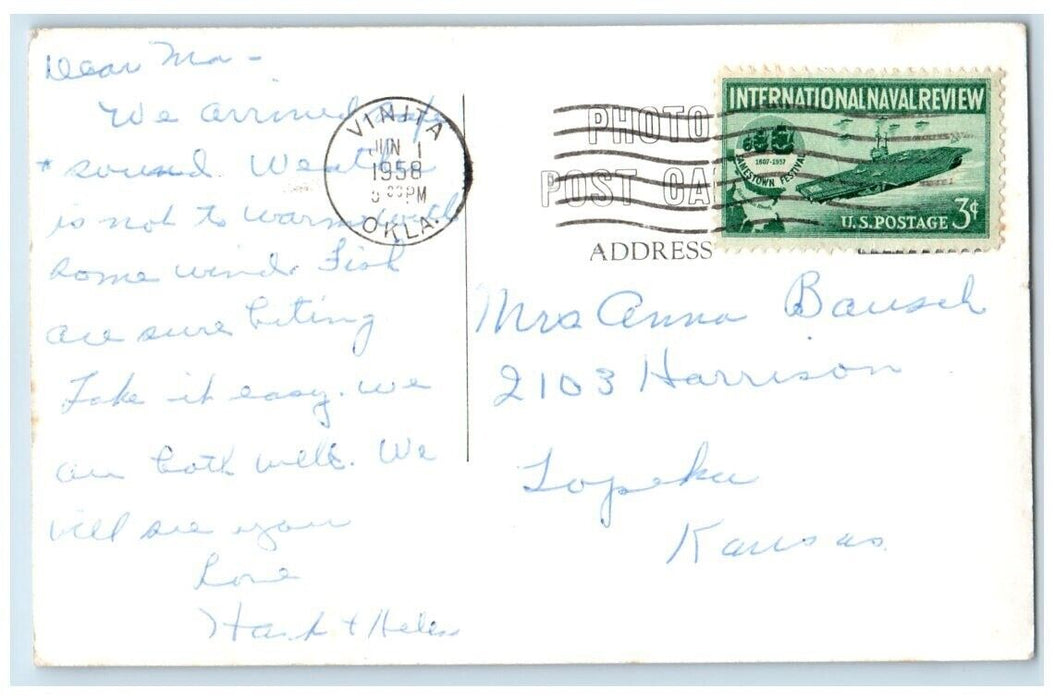 Dear Ma -
We arrived safe
+ sound. Weather
is not to warm with
some wind. Fish
are sure biting
Take it easy. We
are both well. We
will see you
Love
Hank + Helen
VINITA
JUN 1
1958
PM
OKLA.
PHOTO
POST CA
INTERNATIONAL NAVAL REVIEW
1607-1957
JAMESTOWN FESTIVAL
U.S. POSTAGE 3¢
ADDRESS
Mrs Anna Bausch
2103 Harrison
Topeka
Kansas